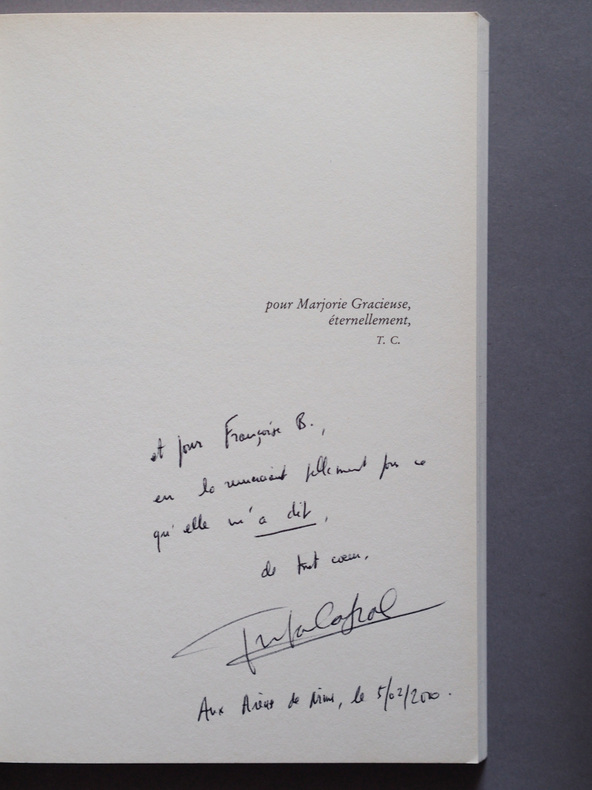 pour Marjorie Gracieuse,
éternellement,
T. C.
et pour Françoise B.,
en la remerciant tellement pour ce
qu'elle m'a dit,
de tout cœur,
Aux de Nîmes, le 5/02/2010.